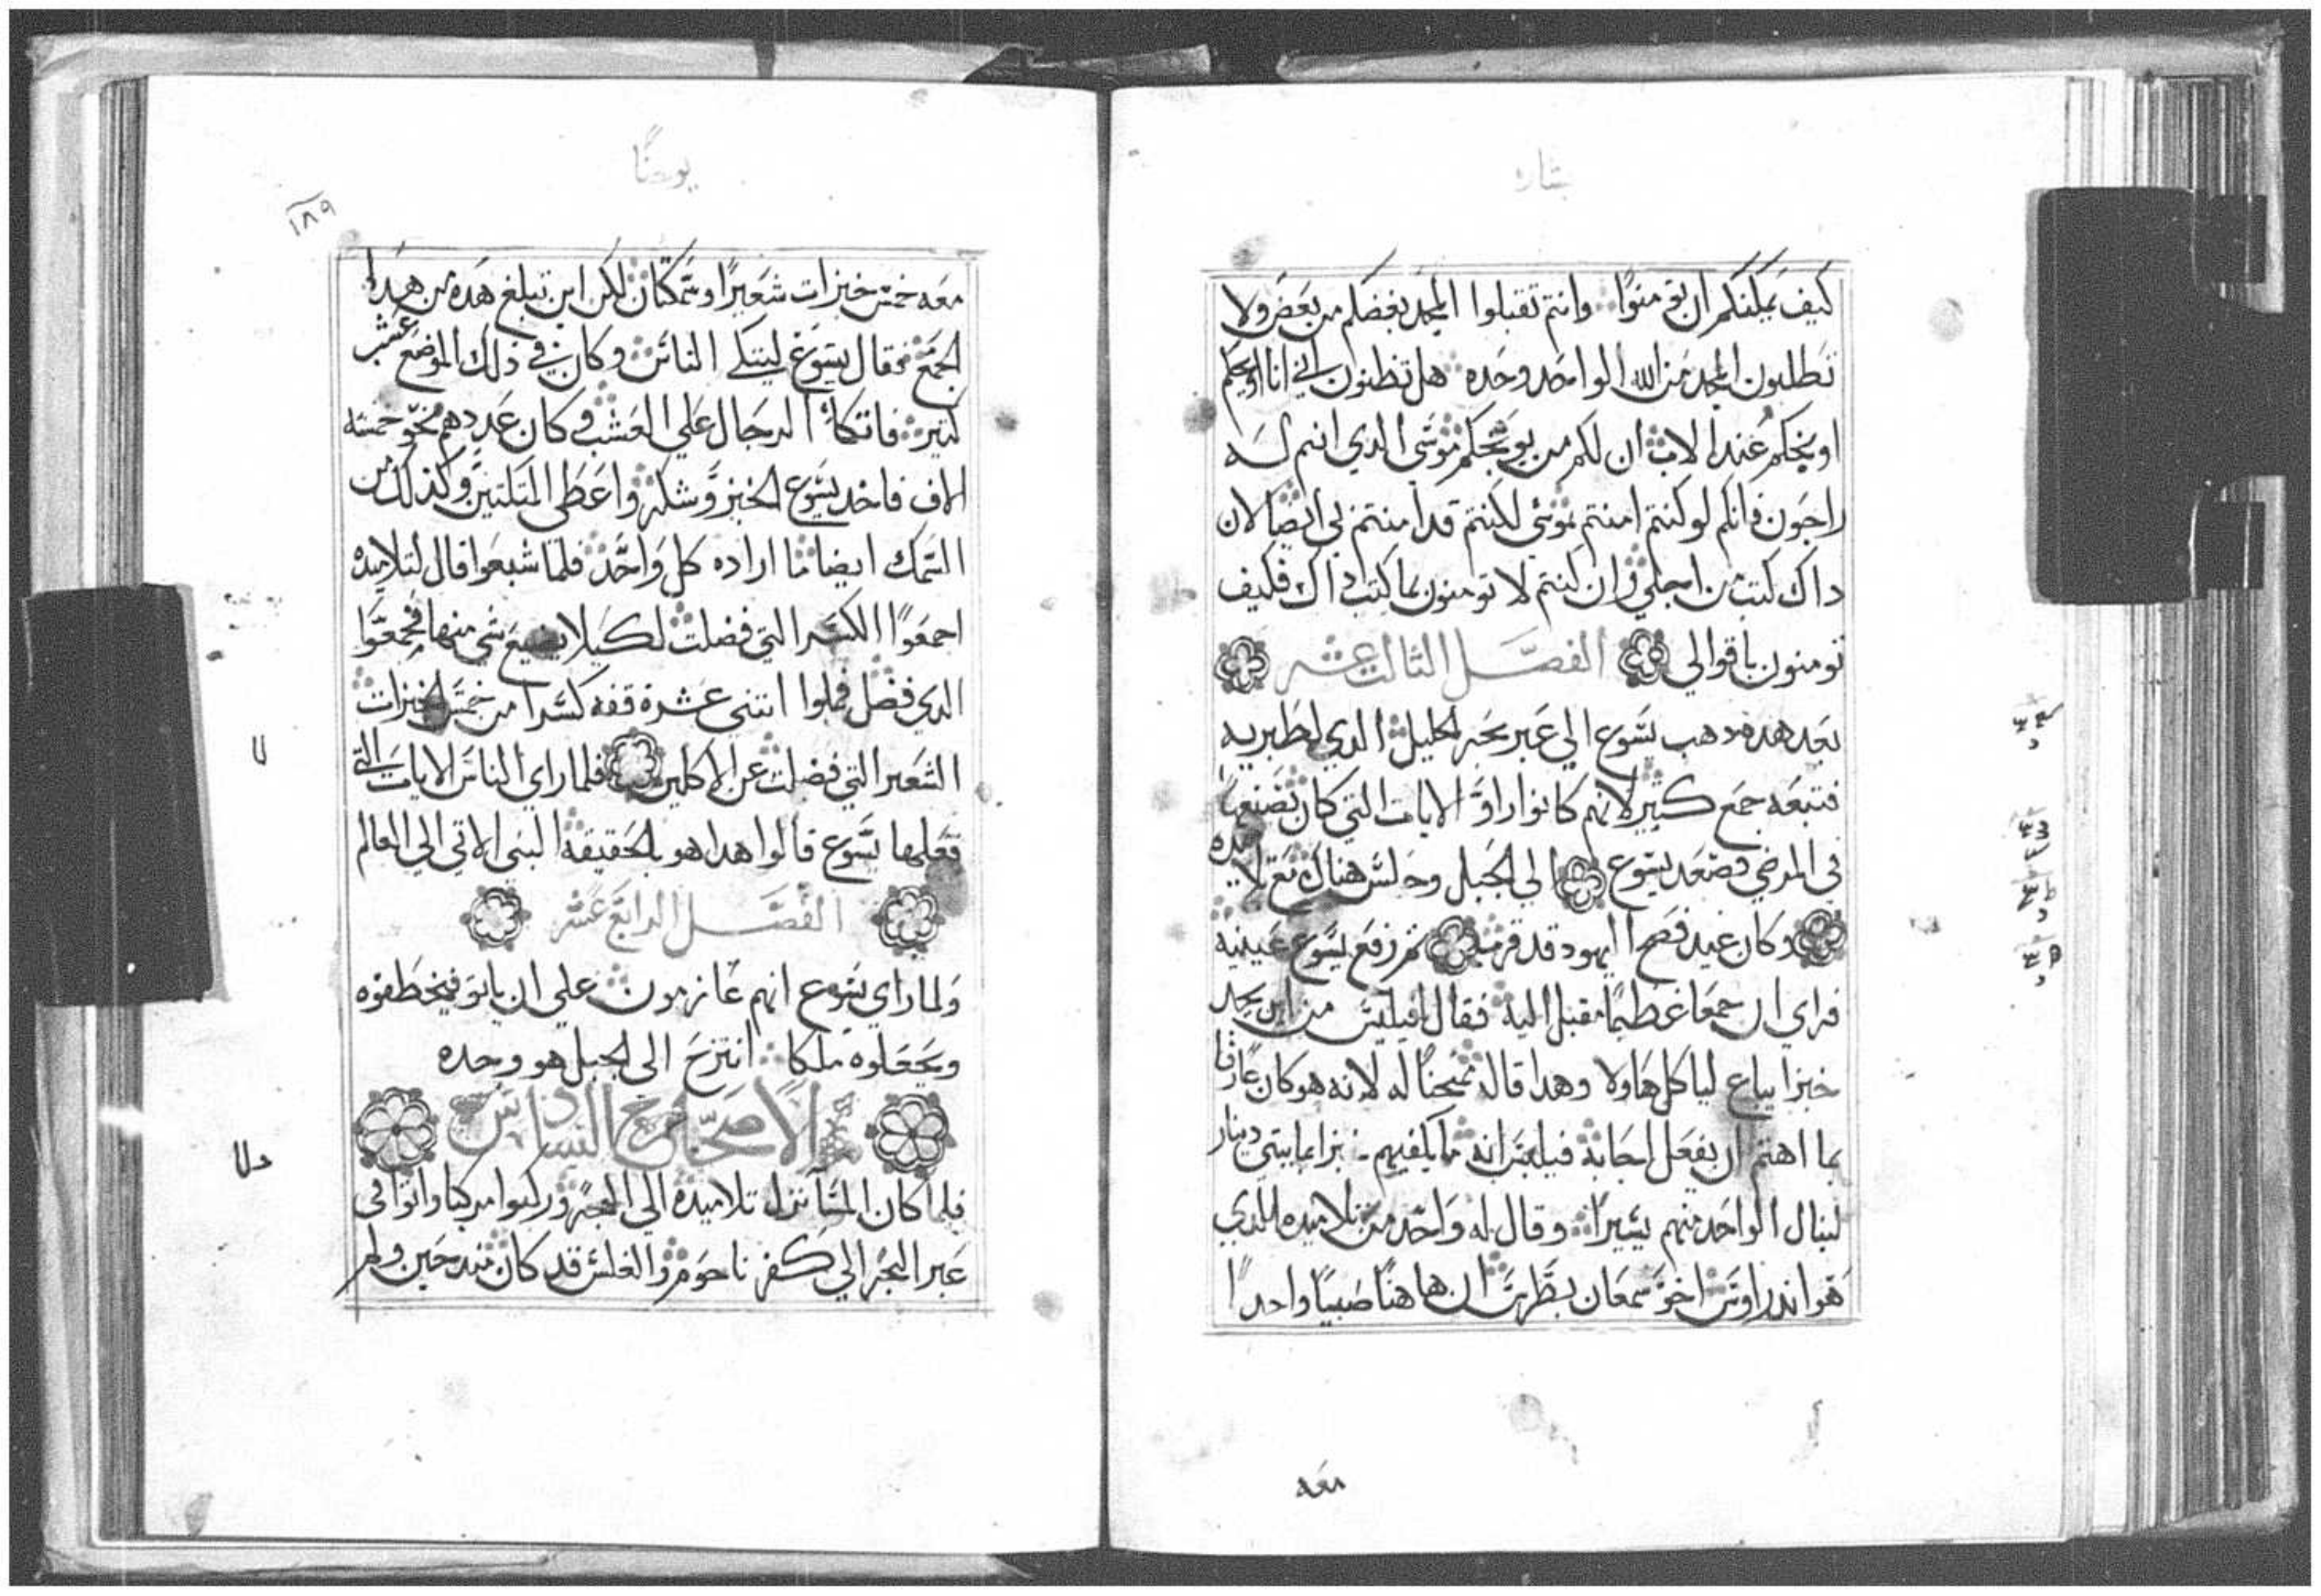 بشاره
كيف يمكنكم ان تومنوا وانتم تقبلوا المجد بعضكم من بعض ولا
تطلبون المجد من الله الواحد وحده هل تظنون اني انا اوبخكم
اوبخكم عند الاب ان لكم من يوبخكم موسى الدي انتم له
راجون فانكم لو كنتم امنتم بموسى لكنتم قد امنتم بي ايضا لان
داك كتب من اجلي وان كنتم لا تومنون بما كتب داك فكيف
تومنون باقوالي الفصل الثالث عشر
بعد هده دهب يسوع الي عبر بحر الجليل الدي لطبريه
فتبعه جمع كثير لانهم كانوا راوا الايات التي كان يصنعها
في المرضي فصعد يسوع الي الجبل وجلس هناك مع تلاميده
وكان عيد فصح اليهود قد قرب ثم رفع يسوع عينيه
فراي ان جمعا عظيما مقبل اليه فقال لفيلبس من اين نجد
خبزا يباع لياكل هاولا وهدا قاله ممتحنا له لانه هو كان عارفا
بما اهتم ان يفعل اجابه فيلبس انه ما يكفيهم خبزا بمايتي دينار
لينال الواحد منهم يسيرا وقال له واحد من تلاميده الدي
هو اندراوس اخو سمعان بطرس ان هاهنا صبيا واحدا
معه
يوحنا
١٨٩
معه خمس خبزات شعيرا وسمكتان لكن اين تبلغ هده من هدا
الجمع فقال يسوع ليتكي الناس وكان في ذلك الموضع عشب
كتير فاتكا الرجال علي العشب وكان عددهم نحو خمسه
الاف فاخد يسوع الخبز وشكر واعطى المتكئين وكذلك من
السمك ايضا ما اراده كل واحد فلما شبعوا قال لتلاميده
اجمعوا الكسر التي فضلت لكيلا يضيع شي منها فجمعوا
الدي فضل فملوا اتنى عشرة قفه كسرا من خمس الخبزات
الشعير التي فضلت عن الاكلين فلما راي الناس الايات التي
فعلها يسوع قالوا هدا هو بالحقيقه النبي الاتي الي العالم
الفصل الرابع عشر
ولما راي يسوع انهم عازمون علي ان ياتوا فيخطفوه
ويجعلوه ملكا انتزح الى الجبل هو وحده
الاصحاح السادس
فلما كان المسا نزل تلاميده الي البحر وركبوا مركبا واتوا في
عبر البحر الي كفر ناحوم والغلس قد كان مند حين ولم